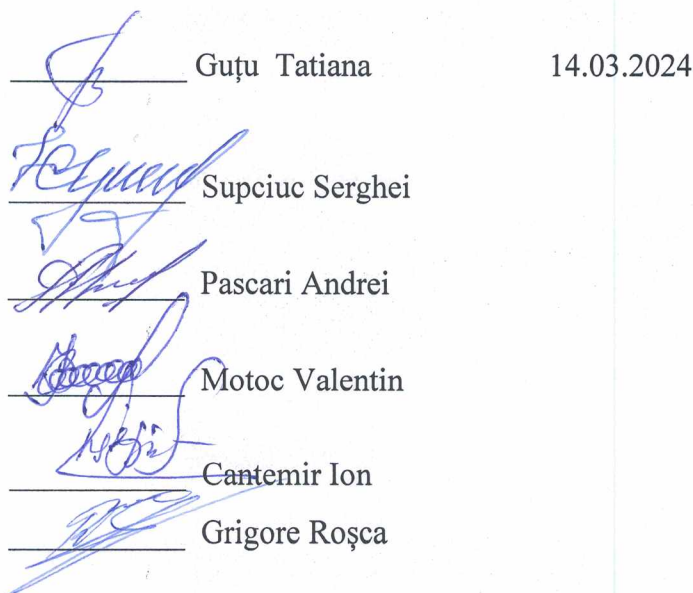 Guțu Tatiana 14.03.2024
Supciuc Serghei
Pascari Andrei
Motoc Valentin
Cantemir Ion
Grigore Roșca